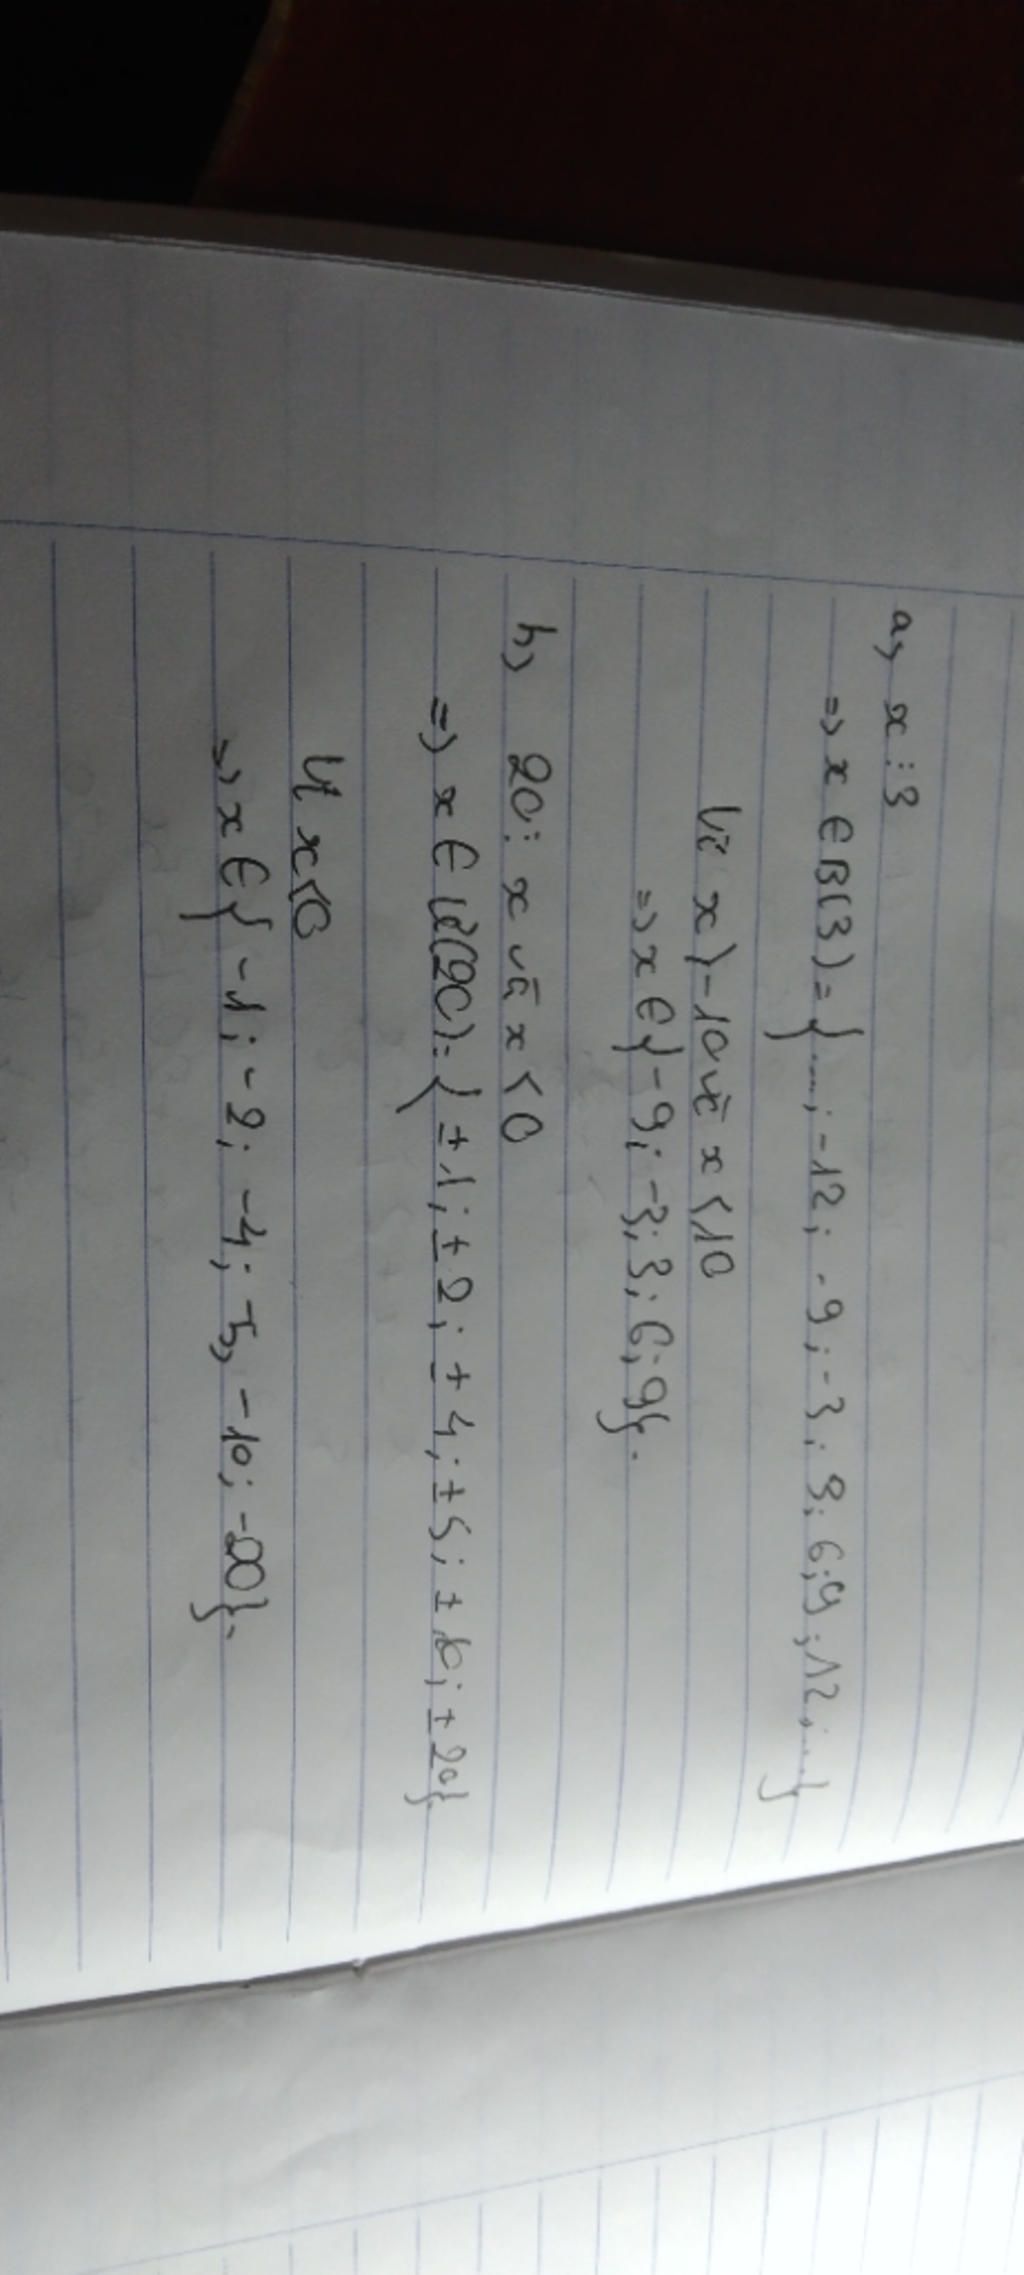 a, x ⋮ 3
=> x ∈ B(3) = {...; -12; -9; -3; 3; 6; 9; 12; ...}
Vì x > -10 và x < 10
=> x ∈ {-9; -3; 3; 6; 9}.
b, 20 ⋮ x và x < 0
=> x ∈ Ư(20) = {±1; ±2; ±4; ±5; ±10; ±20}
Vì x < 0
=> x ∈ {-1; -2; -4; -5, -10; -20}.